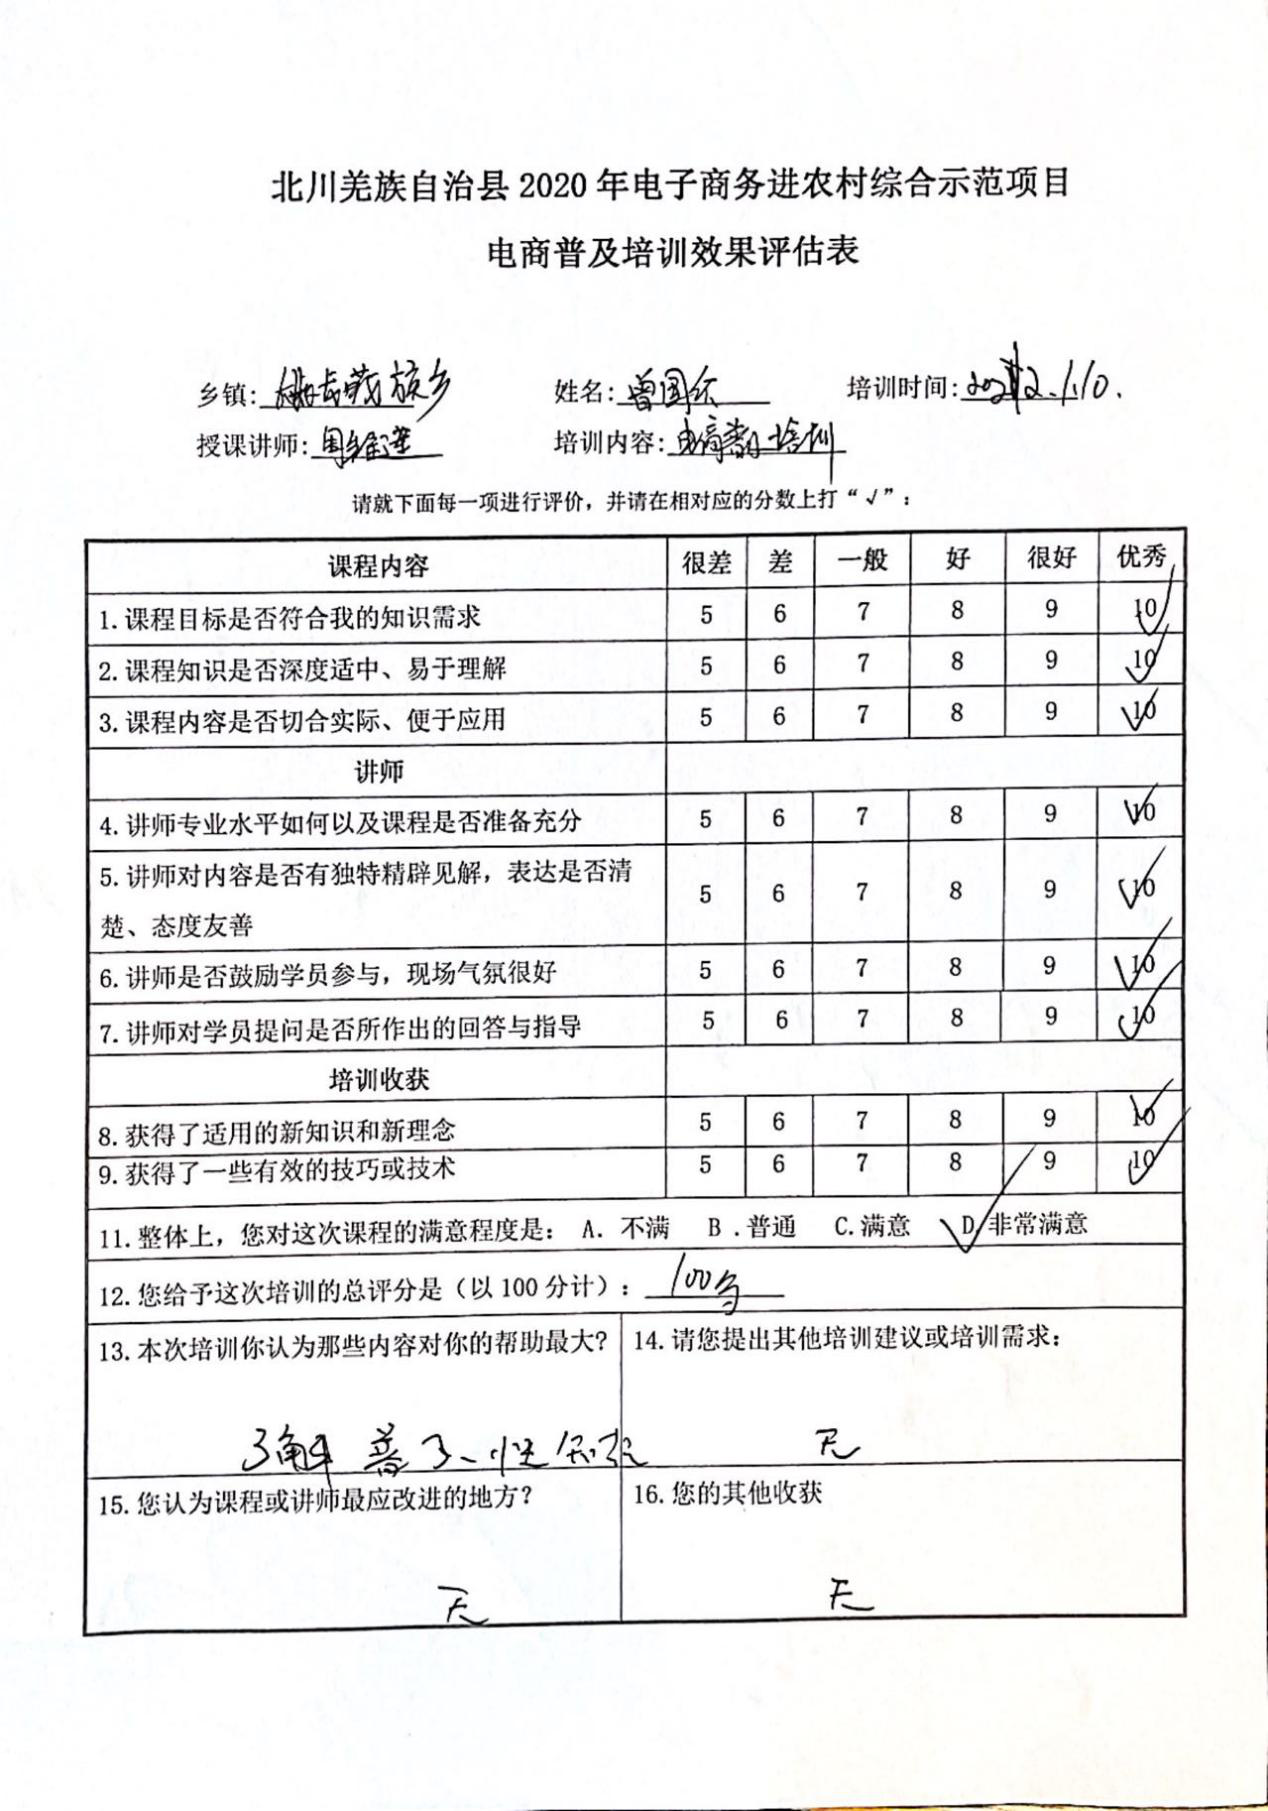 北川羌族自治县 2020 年电子商务进农村综合示范项目
电商普及培训效果评估表
乡镇: 族乡 姓名: 曾国 培训时间: .1.10.
授课讲师: 周维 培训内容: 电商 培训
请就下面每一项进行评价，并请在相对应的分数上打“√”：
课程内容 很差 差 一般 好 很好 优秀
1.课程目标是否符合我的知识需求 5 6 7 8 9 10 √
2.课程知识是否深度适中、易于理解 5 6 7 8 9 10 √
3.课程内容是否切合实际、便于应用 5 6 7 8 9 10 √
讲师
4.讲师专业水平如何以及课程是否准备充分 5 6 7 8 9 10 √
5.讲师对内容是否有独特精辟见解，表达是否清
楚、态度友善 5 6 7 8 9 10 √
6.讲师是否鼓励学员参与，现场气氛很好 5 6 7 8 9 10 √
7.讲师对学员提问是否所作出的回答与指导 5 6 7 8 9 10 √
培训收获
8.获得了适用的新知识和新理念 5 6 7 8 9 10 √
9.获得了一些有效的技巧或技术 5 6 7 8 9 10 √
11.整体上，您对这次课程的满意程度是： A. 不满 B .普通 C.满意 √ D.非常满意
12.您给予这次培训的总评分是（以 100 分计）: 100分
13.本次培训你认为那些内容对你的帮助最大? 14.请您提出其他培训建议或培训需求:
了解 普 性知识 无
15.您认为课程或讲师最应改进的地方? 16.您的其他收获
无 无